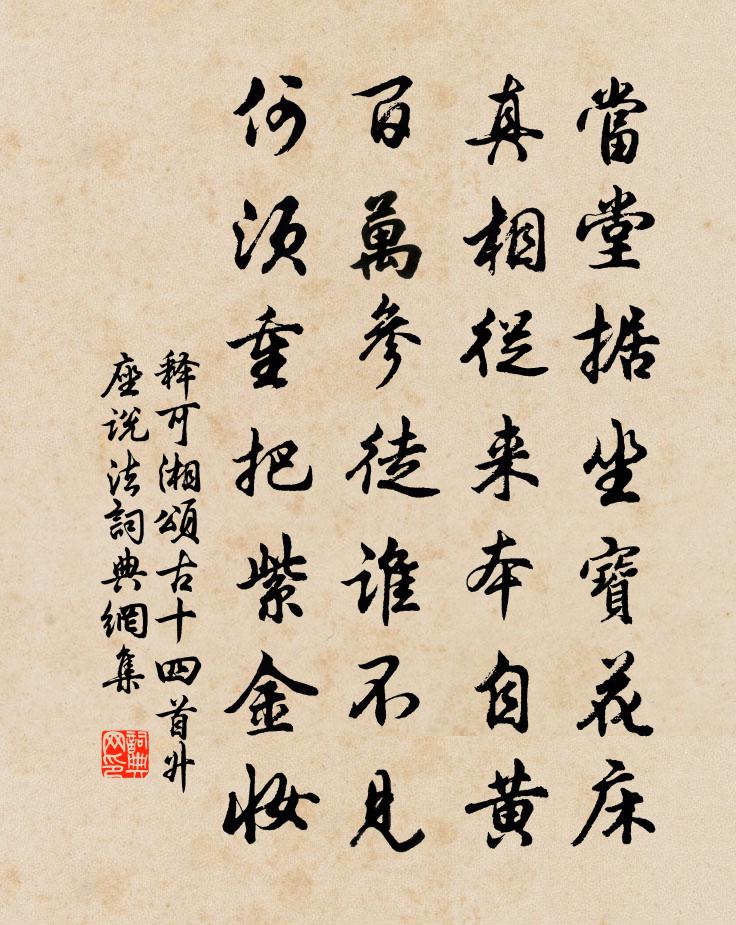 當堂据坐寶花床
真相從来本自黄
百萬參徒誰不見
何須重把紫金妝
释可湘頌古十四首升
座说法詞典網集
詞典
网印